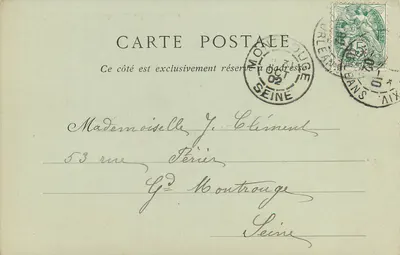 CARTE POSTALE
Ce côté est exclusivement réservé à l'adresse
MONTROUGE
SEINE
Mademoiselle J. Clément
53 rue Périer
Gd Montrouge
Seine